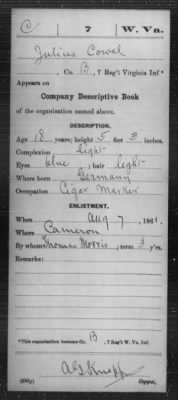 C 7 W. Va.
Julius Cowel
, Co. B, 7 Reg't Virginia Inf*
Appears on
Company Descriptive Book
of the organization named above.
DESCRIPTION.
Age 18 years; height 5 feet 3 inches.
Complexion light
Eyes blue, hair light
Where born Germany
Occupation Cigar Marker
ENLISTMENT.
When Aug 7, 1861.
Where Cameron
By whom Thomas Morris; term 3 y'rs.
Remarks:
*This organization became Co. B, 7 Reg't W. Va. Inf
Copyist.